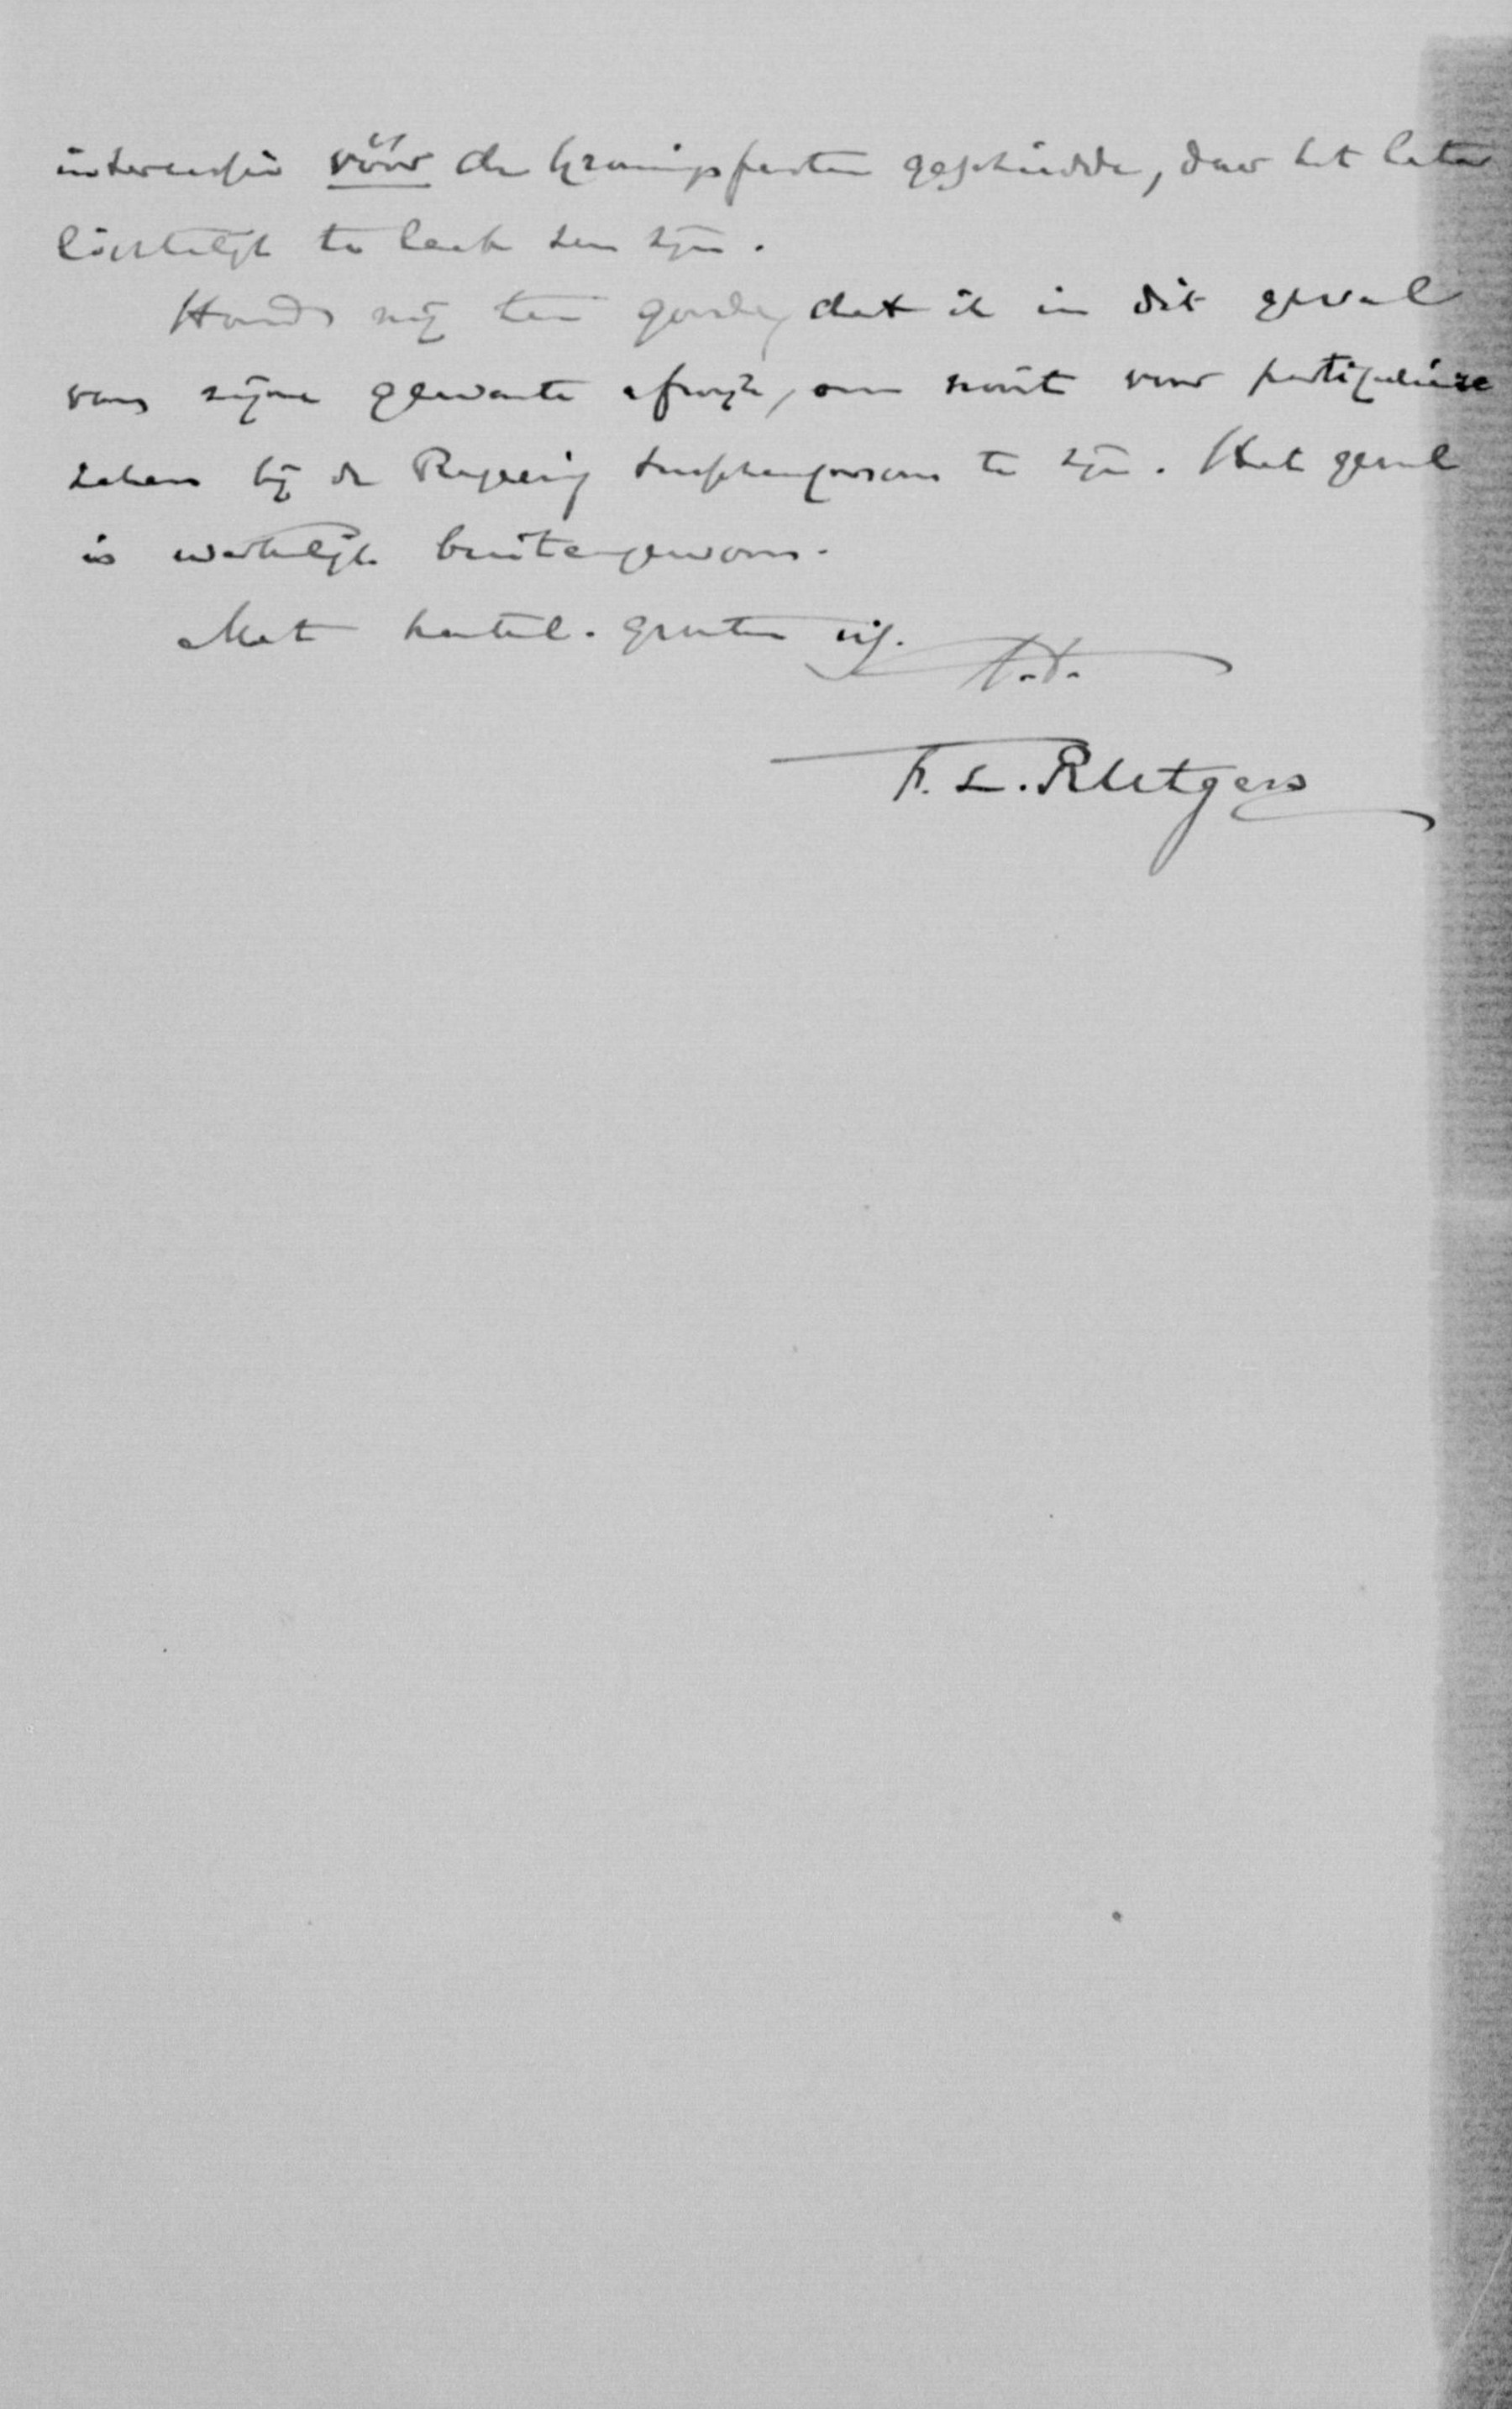 intercessie vóór de kroningsfeesten geschiedde, daar het later
lichtelijk te laat zou zijn.
Houd mij ten goede, dat ik in dit geval
van mijne gewoonte afwijk, om nooit voor partikuliere
zaken bij de Regeering tusschenpersoon te zijn. Het geval
is werkelijk buitengewoon.
Met hartel. groeten
t.t.
F. L. Rutgers